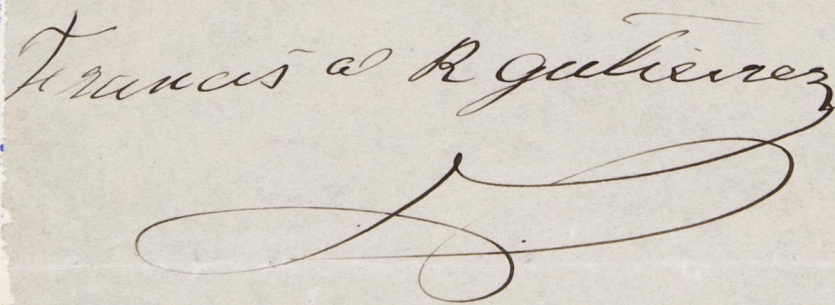 Francisca R Gutierrez